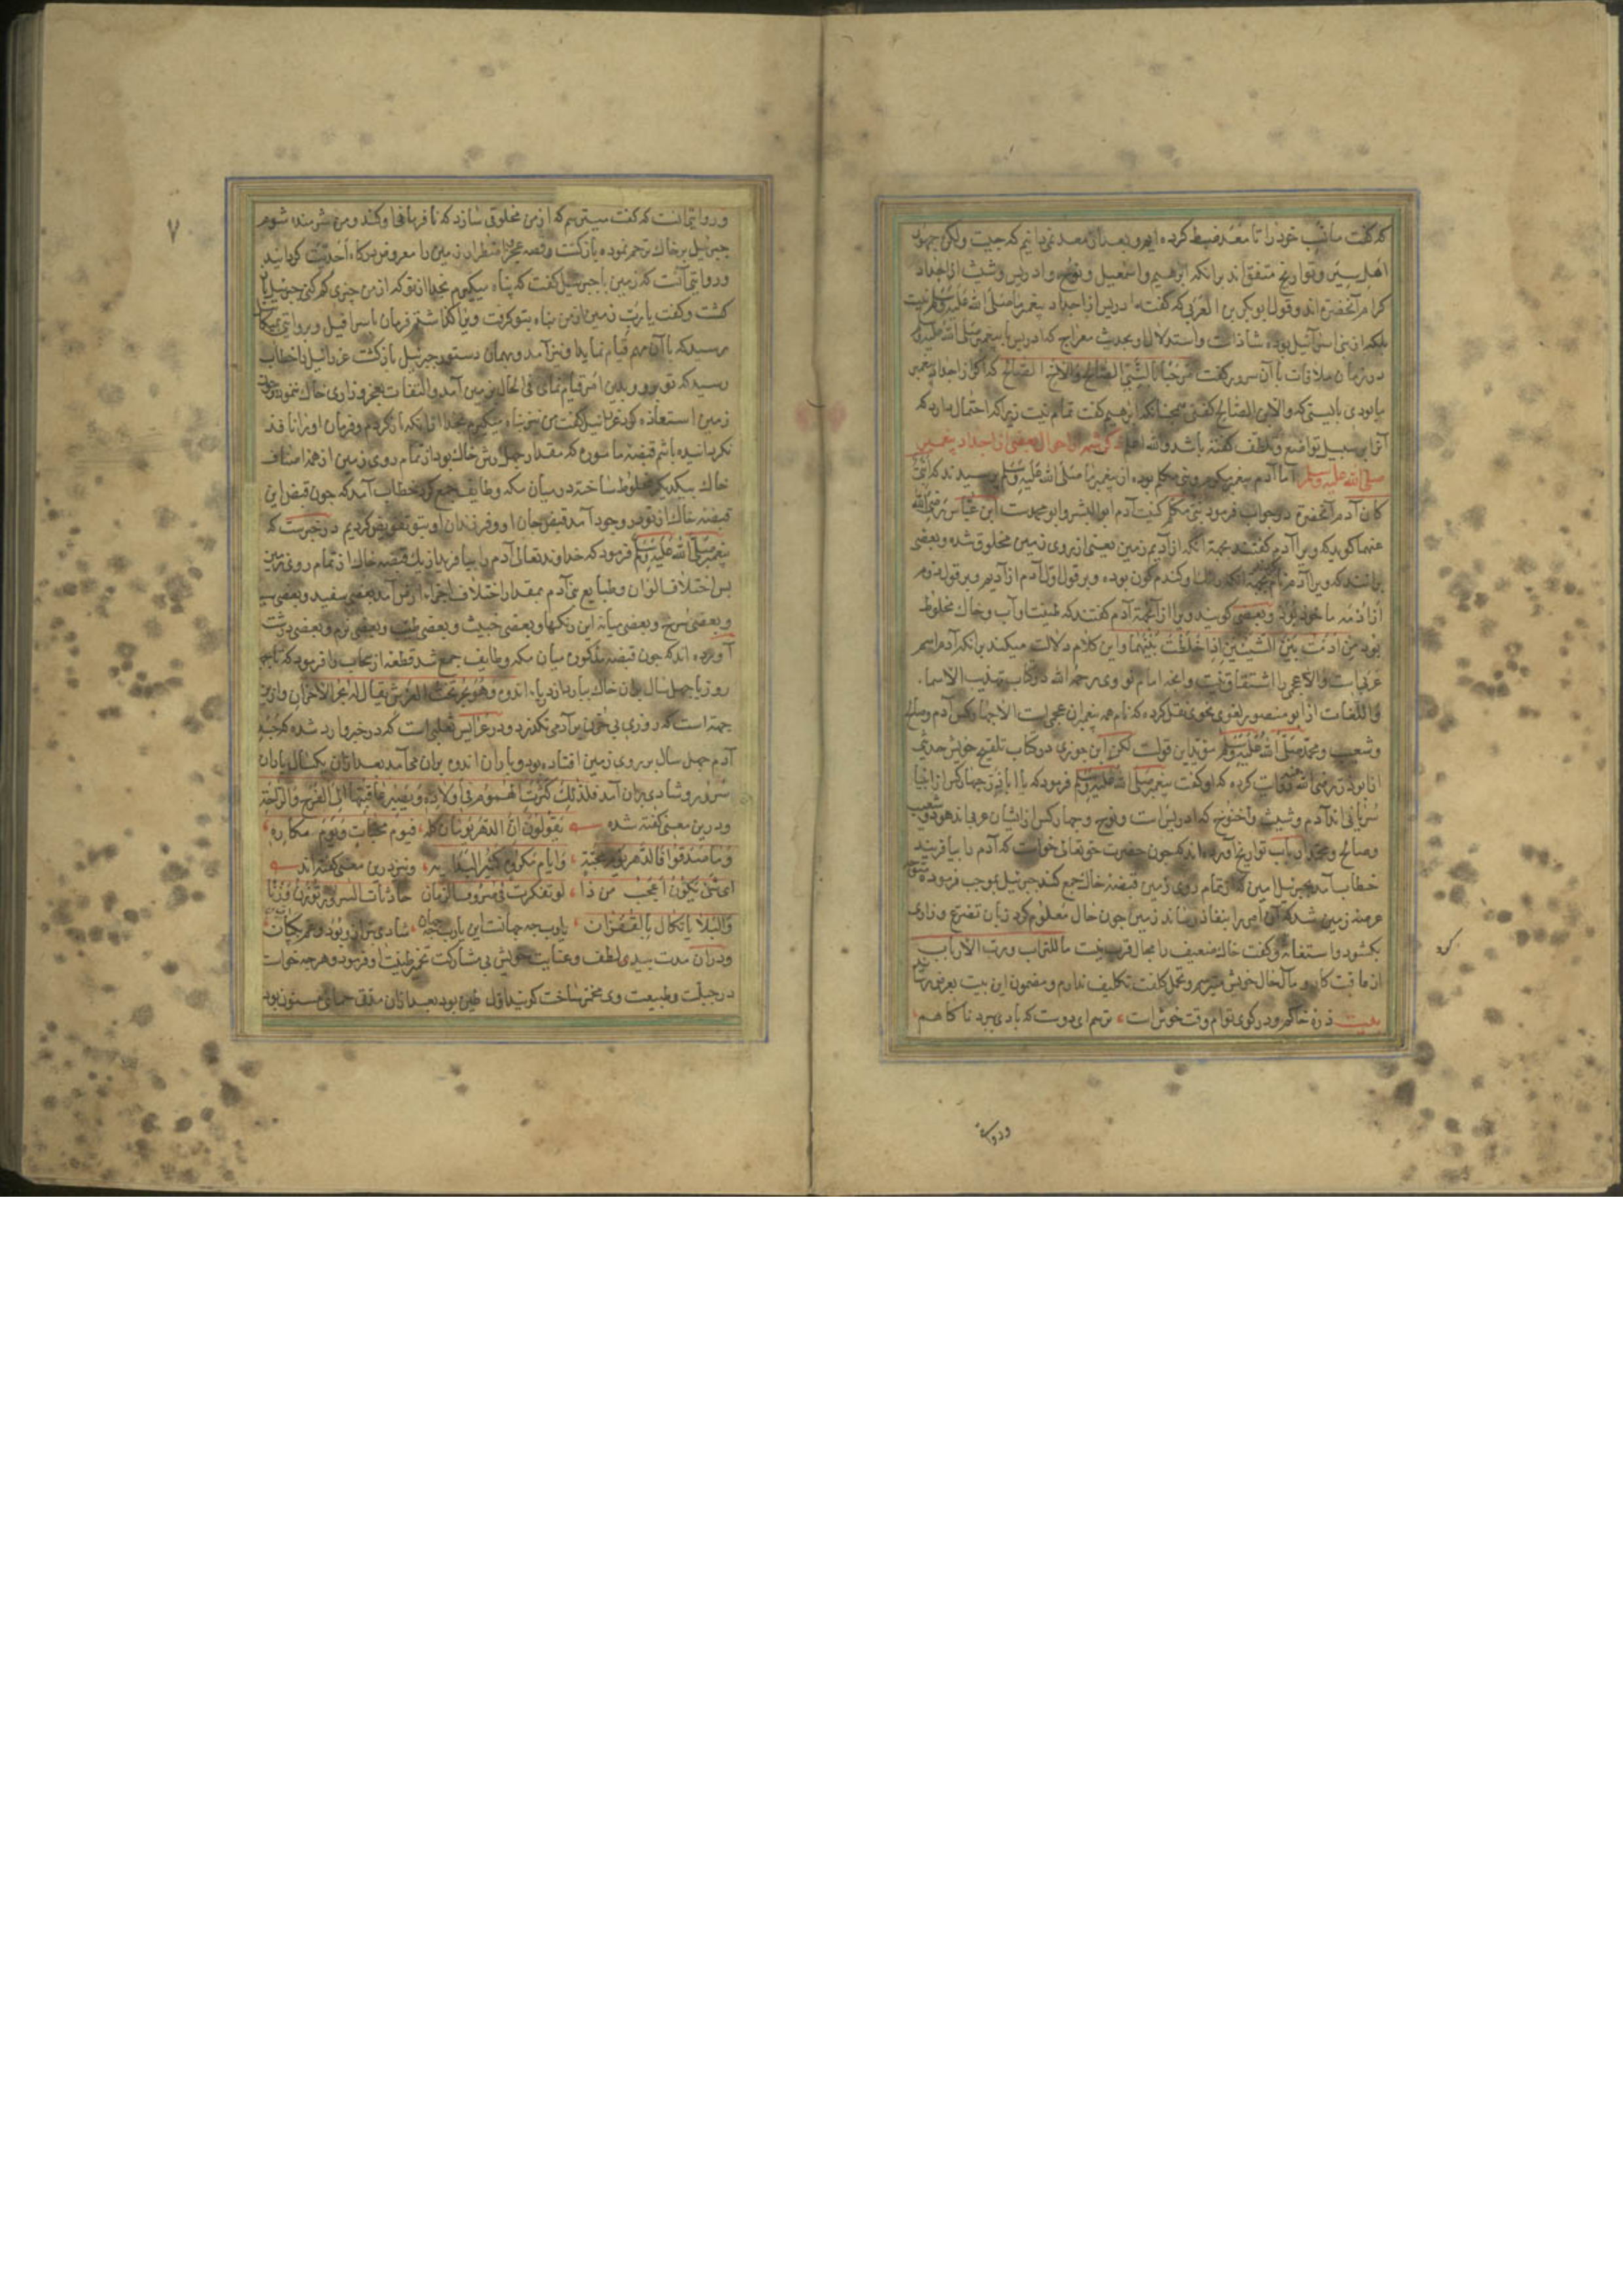 که گفت ما نسب خود را تا معد ضبط کرده ایم و بعد از معد نمی دانیم که چیست ولکن جمهور
اهل سیر و تواریخ متفق اند برانکه ابرهیم و اسمعیل و نوح و ادریس و شیث از اجداد
کرام آنحضرة اند و قول ابو بکر بن العربی که گفت ادریس از اجداد پیغمبر ما صلی الله علیه وسلم نیست
بلکه از بنی اسرائیل بوده شاذ است و استدلال او بحدیث معراج که ادریس با پیغمبر صلی الله علیه وسلم
در زمان ملاقات با آن سرور گفت مرحبا بالنبی الصالح والاخ الصالح که اگر از اجداد پیغمبر
ما بودی بایستی که والابن الصالح کفتی همچنانکه ابرهیم کفت تمام نیست زیراکه احتمال دارد که
آنرا بر سبیل تواضع و تلطف کفته باشد والله اعلم ذکر شمه از احوال بعضی از اجداد پیغمبر
صلی الله علیه وسلم اما آدم پیغمبر مکرم و نبی مکلم بوده از پیغمبر ما صلی الله علیه وسلم پرسیدند که انبی
کان آدم آنحضرة در جواب فرمود نبی مکلم کنیت آدم ابو البشر و ابو محمدست ابن عباس رضی الله
عنهما کوید که ویرا آدم کفتند بجهة آنکه از ادیم زمین یعنی از روی زمین مخلوق شده و بعضی
برانند که ویرا آدم نام بجهة آنکه رنک او کندم کون بوده و بر قول اول آدم از ادیم و بر قول دوم
از ادمه ماخوذ بود و بعضی کویند ویرا از آنجهة آدم کفتند که طینت او آب و خاک مخلوط
بود من ادمت بین الشیئین اذا خلطت بینهما و این کلام دلالت میکند برانکه آدم اسم
عربیست و الاعجمی را اشتقاق نیست و آنچه امام نووی رحمه الله در کتاب تهذیب الاسماء
واللغات از ابو منصور لغوی نحوی نقل کرده که نام همه پیغمبران عجمی است الا چهار کس آدم و صالح
و شعیب و محمد صلی الله علیه وسلم مؤید این قولست لکن ابن جوزی در کتاب تلقیح خویش حدیثی
از ابوذر رضی الله عنه روایت کرده که او کفت پیغمبر صلی الله علیه وسلم فرمود که یا اباذر چهار کس از انبیا
سریانی اند آدم و شیث و اخنوخ که ادریس است و نوح و چهار کس ازیشان عربی اند هود و شعیب
و صالح و محمد ارباب تواریخ آورده اند که چون حضرت حق تعالی خواست که آدم را بیافریند
خطاب آمد بجبرئیل امین که از تمام روی زمین قبضه خاک جمع کند جبرئیل بموجب فرموده متوجه
عرصه زمین شد که آن امر را بنفاذ رساند زمین چون حال معلوم کرد زبان تضرع و زاری
بکشود و استغاثه و کفت خاک ضعیف را مجال قرب نیست ما للتراب و رب الارباب
از عاقبت کار و مآل حال خویش میترسم و تحمل کلفت تکلیف ندارم و مضمون این بیت بعرض رسانید
بیت ذره خاکم و در کوی توام وقت خوش است ترسم ای دوست که بادی ببرد ناکاهم
کرد
وروایة
۷
و روایتی آنست که کفت میترسم که از من مخلوقی سازد که نافرمانی او کند و من شرمنده شوم
جبرئیل بر خاک ترحم نموده بازکشت و قصه عجز و اضطرار زمین را معروض درکاه احدیت کردانید
و روایتی آنست که زمین با جبرئیل کفت که پناه میکیرم بخدا از تو که از من چیزی کم کنی جبرئیل باز
کشت و کفت یا رب زمین از من پناه بتو کرفت ویرا کذاشتم فرمان باسرافیل و روایتی میکائیل
رسید که بآن مهم قیام نماید او نیز آمد و بهمان دستور جبرئیل بازکشت عزرائیل را خطاب
رسید که تو برو و بدین امر قیام نمای فی الحال بزمین آمد و التفات بعجز و زاری خاک ننمود چون
زمین استعاذه کرد عزرائیل کفت من نیز پناه میکیرم بخدا از آنکه بازکردم و فرمان او را نافذ
نکردانیده باشم قبضه ماسوره که مقدار چهل رش خاک بود از تمام روی زمین از هذا صناف
خاک بیکدیکر مخلوط ساخته در میان مکه و طایف جمع کرد خطاب آمد که چون قبض این
قبضه خاک از تو در وجود آمد قبض جان او و فرزندان او بتو تفویض کردیم در خبرست که
پیغمبر صلی الله علیه وسلم فرمود که خداوند تعالی آدم را بیافرید از یک قبضه خاک از تمام روی زمین
پس اختلاف الوان و طبایع بنی آدم بمقدار اختلاف اجزاء ارض آمد بعضی سفید و بعضی سیاه
و بعضی سرخ و بعضی میانه این رنکها و بعضی خبیث و بعضی طیب و بعضی نرم و بعضی درشت
آورده اند که چون قبضه مذکوره میان مکه و طایف جمع شد قطعه از سحاب را فرمود که تا چهل
روز یا چهل سال بدان خاک ببارد از دریاء اندوه وهو بحر تحت العرش یقال له بحر الاحزان و ازین
جهة است که روزی بی حزنی بر آدمی نکذرد و در عرایس ثعلبی است که در خبر وارد شده که جسد
آدم چهل سال بر روی زمین افتاده بود و باران اندوه بران می آمد بعد ازان یکسال باران
سرور و شادی بران آمد فلذلک کثرت الهموم فی اولاده و یصیر عاقبتها الی الفرح والراحة
و درین معنی کفته شده یقولون ان الدهر یومان کله فیوم محبات و یوم مکاره
وما صدقوا فالدهر یوم محبة وایام مکروه کثیر البدایه و نیز درین معنی کفته اند
ای شئ یکون اعجب من ذا لو تفکرت فی صروف الزمان حادثات السرور توزن وزنا
والبلایا تکال بالقفزان یارب چه جهانست این یارب چه جهان شادی بترازو بود و غم بچکان
و دران مدت بیدی لطف و عنایت خویش بی مشارکت تخمیر طینت او فرمود و هر چه خواست
در جبلت و طبیعت وی مخمر ساخت کویند اول طین بود بعد ازان مدتی حما مسنون بود